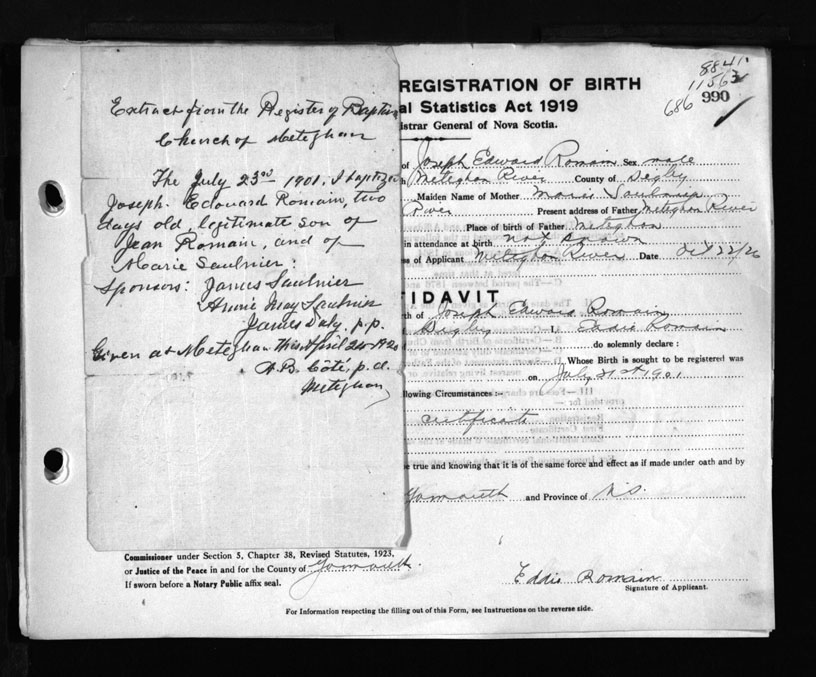 Extract from the Register of Baptism
Church of Meteghan
The July 23rd 1901. I baptized
Joseph Edouard Romain, two
days old, legitimate son of
Jean Romain, and of
Marie Saulnier:
Sponsors: James Saulnier
Annie May Saulnier
James Daly. p.p.
Given at Meteghan this April 24
A. B. Côté, p. d.
Meteghan
8841
11563
686 990
REGISTRATION OF BIRTH
al Statistics Act 1919
istrar General of Nova Scotia.
of Joseph Edward Romain Sex male
Meteghan River County of Digby
Maiden Name of Mother Marie Saulnier
River Present address of Father Meteghan River
Place of birth of Father Meteghan
in attendance at birth not known
ss of Applicant Meteghan River Date Oct 22/26
FIDAVIT
th of Joseph Edward Romain
Digby I, Eddie Romain
do solemnly declare :
Whose Birth is sought to be registered was
on July 21st 1901
ollowing Circumstances :-
certificate
be true and knowing that it is of the same force and effect as if made under oath and by
Yarmouth and Province of N.S.
Commissioner under Section 5, Chapter 38, Revised Statutes, 1923,
or Justice of the Peace in and for the County of Yarmouth.
If sworn before a Notary Public affix seal.
Eddie Romain
Signature of Applicant.
For Information respecting the filling out of this Form, see Instructions on the reverse side.